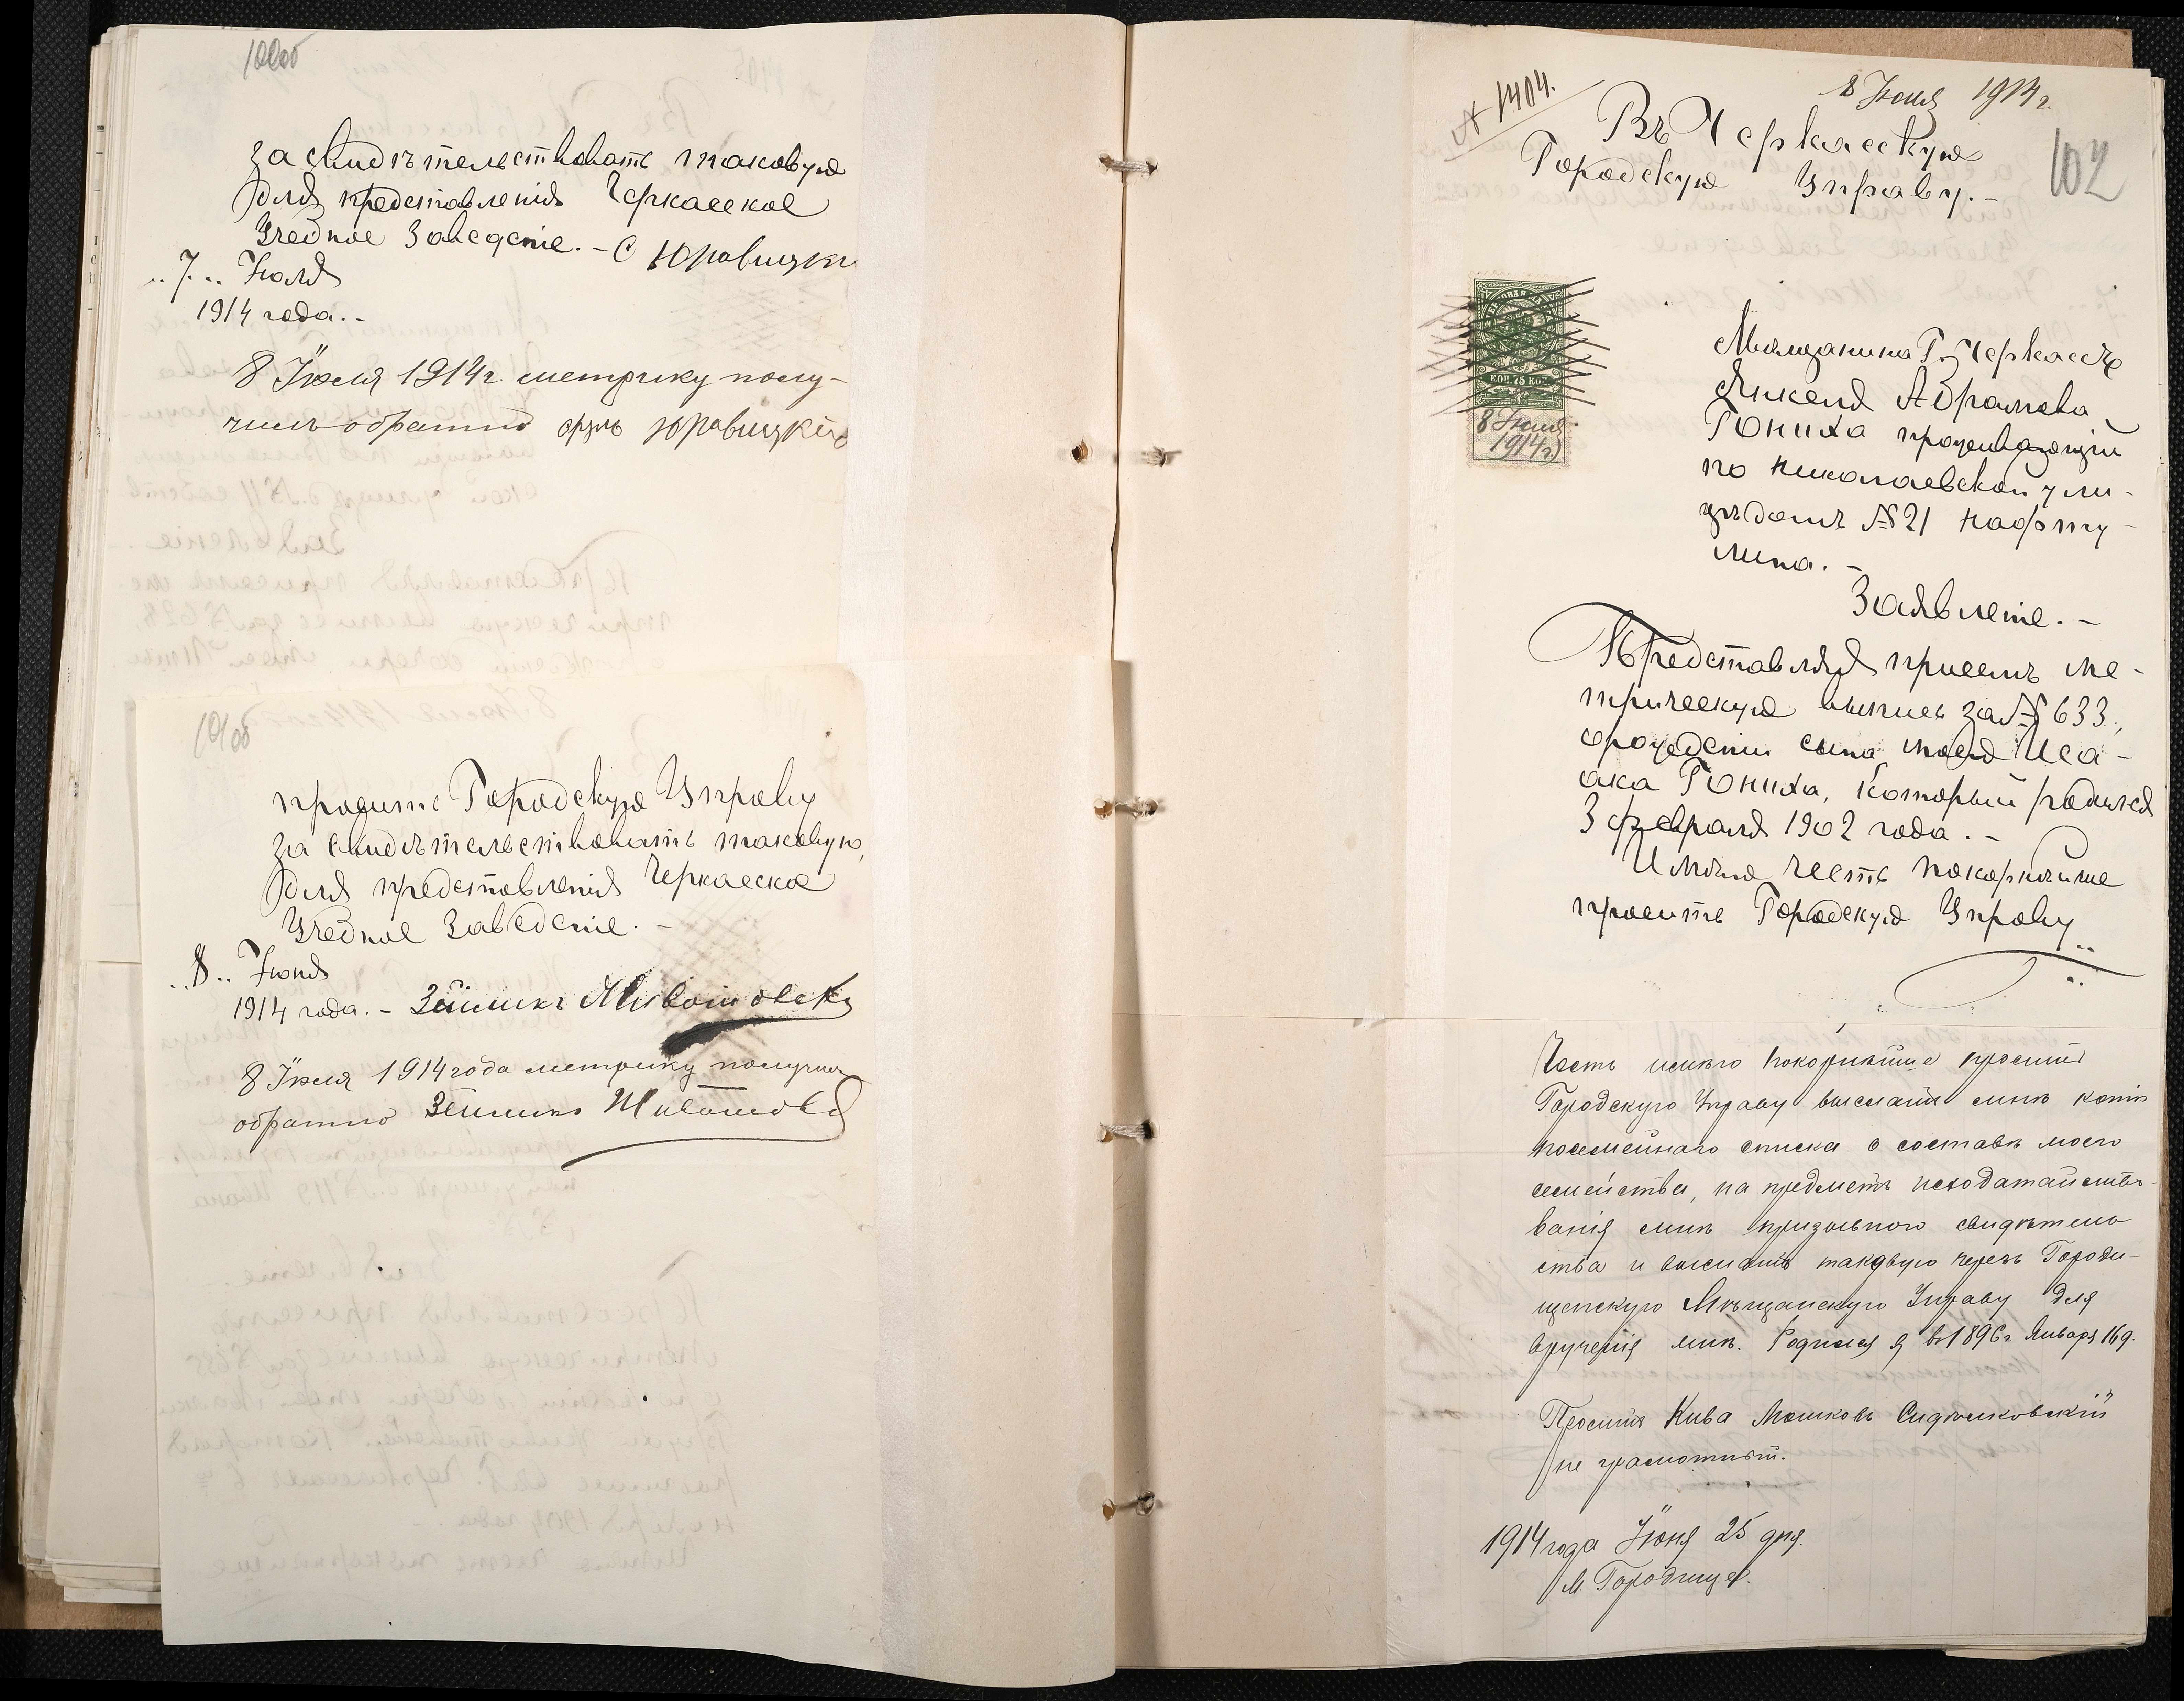 засвидѣтельствовать таковую
для представленія Черкаское
Учебное Заведеніе. - С Юравицки
"7" Іюля
1914 года. -
8 Іюля 1914 г. метрику полу-
чилъ обратно Юравицкій
просить Городскую Управу
засвидѣтельствовать таковую,
для представленія Черкаское
Учебное Заведеніе. -
"8" Іюля
1914 года. -
8 Іюля 1914 года метрику получилъ
обратно
№ 1404.
8 Іюля 1914 г.
102
Въ Черкасскую
Городскую Управу. -
КОП. 75 КОП.
8 Іюля
1914 г.
Мѣщанина Г. Черкассъ
Янкеля Абрамова
Гониха проживающій
по Николаевской ули-
цѣ домъ № 21 Нафту-
лина. -
Заявленіе. -
Представляя присемъ ме-
трическую выпись за № 633,
о рожденіи сына моего Иса-
ака Гониха, который родился
3 февраля 1902 года. -
Имѣю честь покорнѣйше
просить Городскую Управу
Честь имѣю покорнѣйше просить
Городскую Управу выслать мнѣ копію
посемейнаго списка о составѣ моего
семейства, на предметъ исходатайство-
ванія мнѣ призывного свидѣтель
ства и выслать таковую черезъ Городи-
щенскую Мѣщанскую Управу для
врученія мнѣ. Родился я въ 1896 г. Января 16 д.
Проситъ Кива Мошковъ Сидниковскій
не грамотный.
1914 года Іюня 25 дня.
М. Городище.